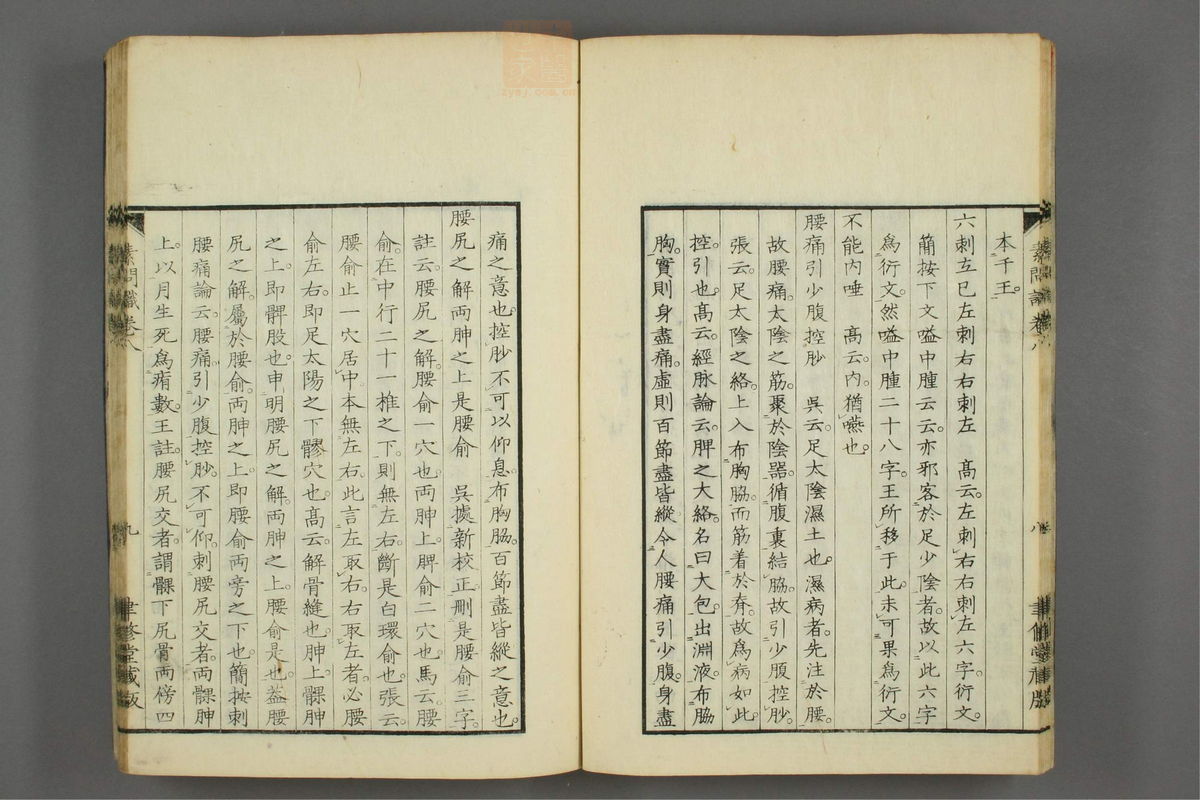 本千王。
六刺立已左刺右右刺左　高云。左刺右。右刺左六字衍文。
簡按下文嗌中腫云云。亦邪客於足少陰者。故以此六字
爲衍文。然嗌中腫二十八字。王所移于此。未可果爲衍文。
不能内唾　高云。内。猶嚥也。
腰痛引少腹控䏚　吳云。足太陰濕土也。濕病者。先注於腰。
故腰痛。太陰之筋。聚於陰器。循腹裏結脇。故引少腹控䏚。
張云。足太陰之絡。上入布胸脇。而筋着於脊。故爲病如此。
控。引也。高云。經脉論云。脾之大絡。名曰大包。出淵液。布脇
胸。實則身盡痛。虛則百節盡皆縱。令人腰痛引少腹。身盡
痛之意也。控䏚不可以仰息。布胸脇。百節盡皆縱之意也。
腰尻之解兩胂之上是腰俞　吳據新校正。刪是腰俞三字。
註云。腰尻之解。腰俞一穴也。兩胂上。脾俞二穴也。馬云。腰
俞。在中行二十一椎之下。則無左右。斷是白環俞也。張云。
腰俞止一穴居中。本無左右。此言左取右。右取左者。必腰
俞左右。即足太陽之下髎穴也。高云。解骨縫也。胂上。髁胂
之上。即髀股也。申明腰尻之解。兩胂之上。腰俞是也。蓋腰
尻之解。屬於腰俞。兩胂之上。即腰俞兩旁之下也。簡按刺
腰痛論云。腰痛引少腹控䏚。不可仰。刺腰尻交者。兩髁胂
上。以月生死爲痏數。王註。腰尻交者。謂髁下尻骨兩傍四
素問識卷八
九
聿修堂藏版